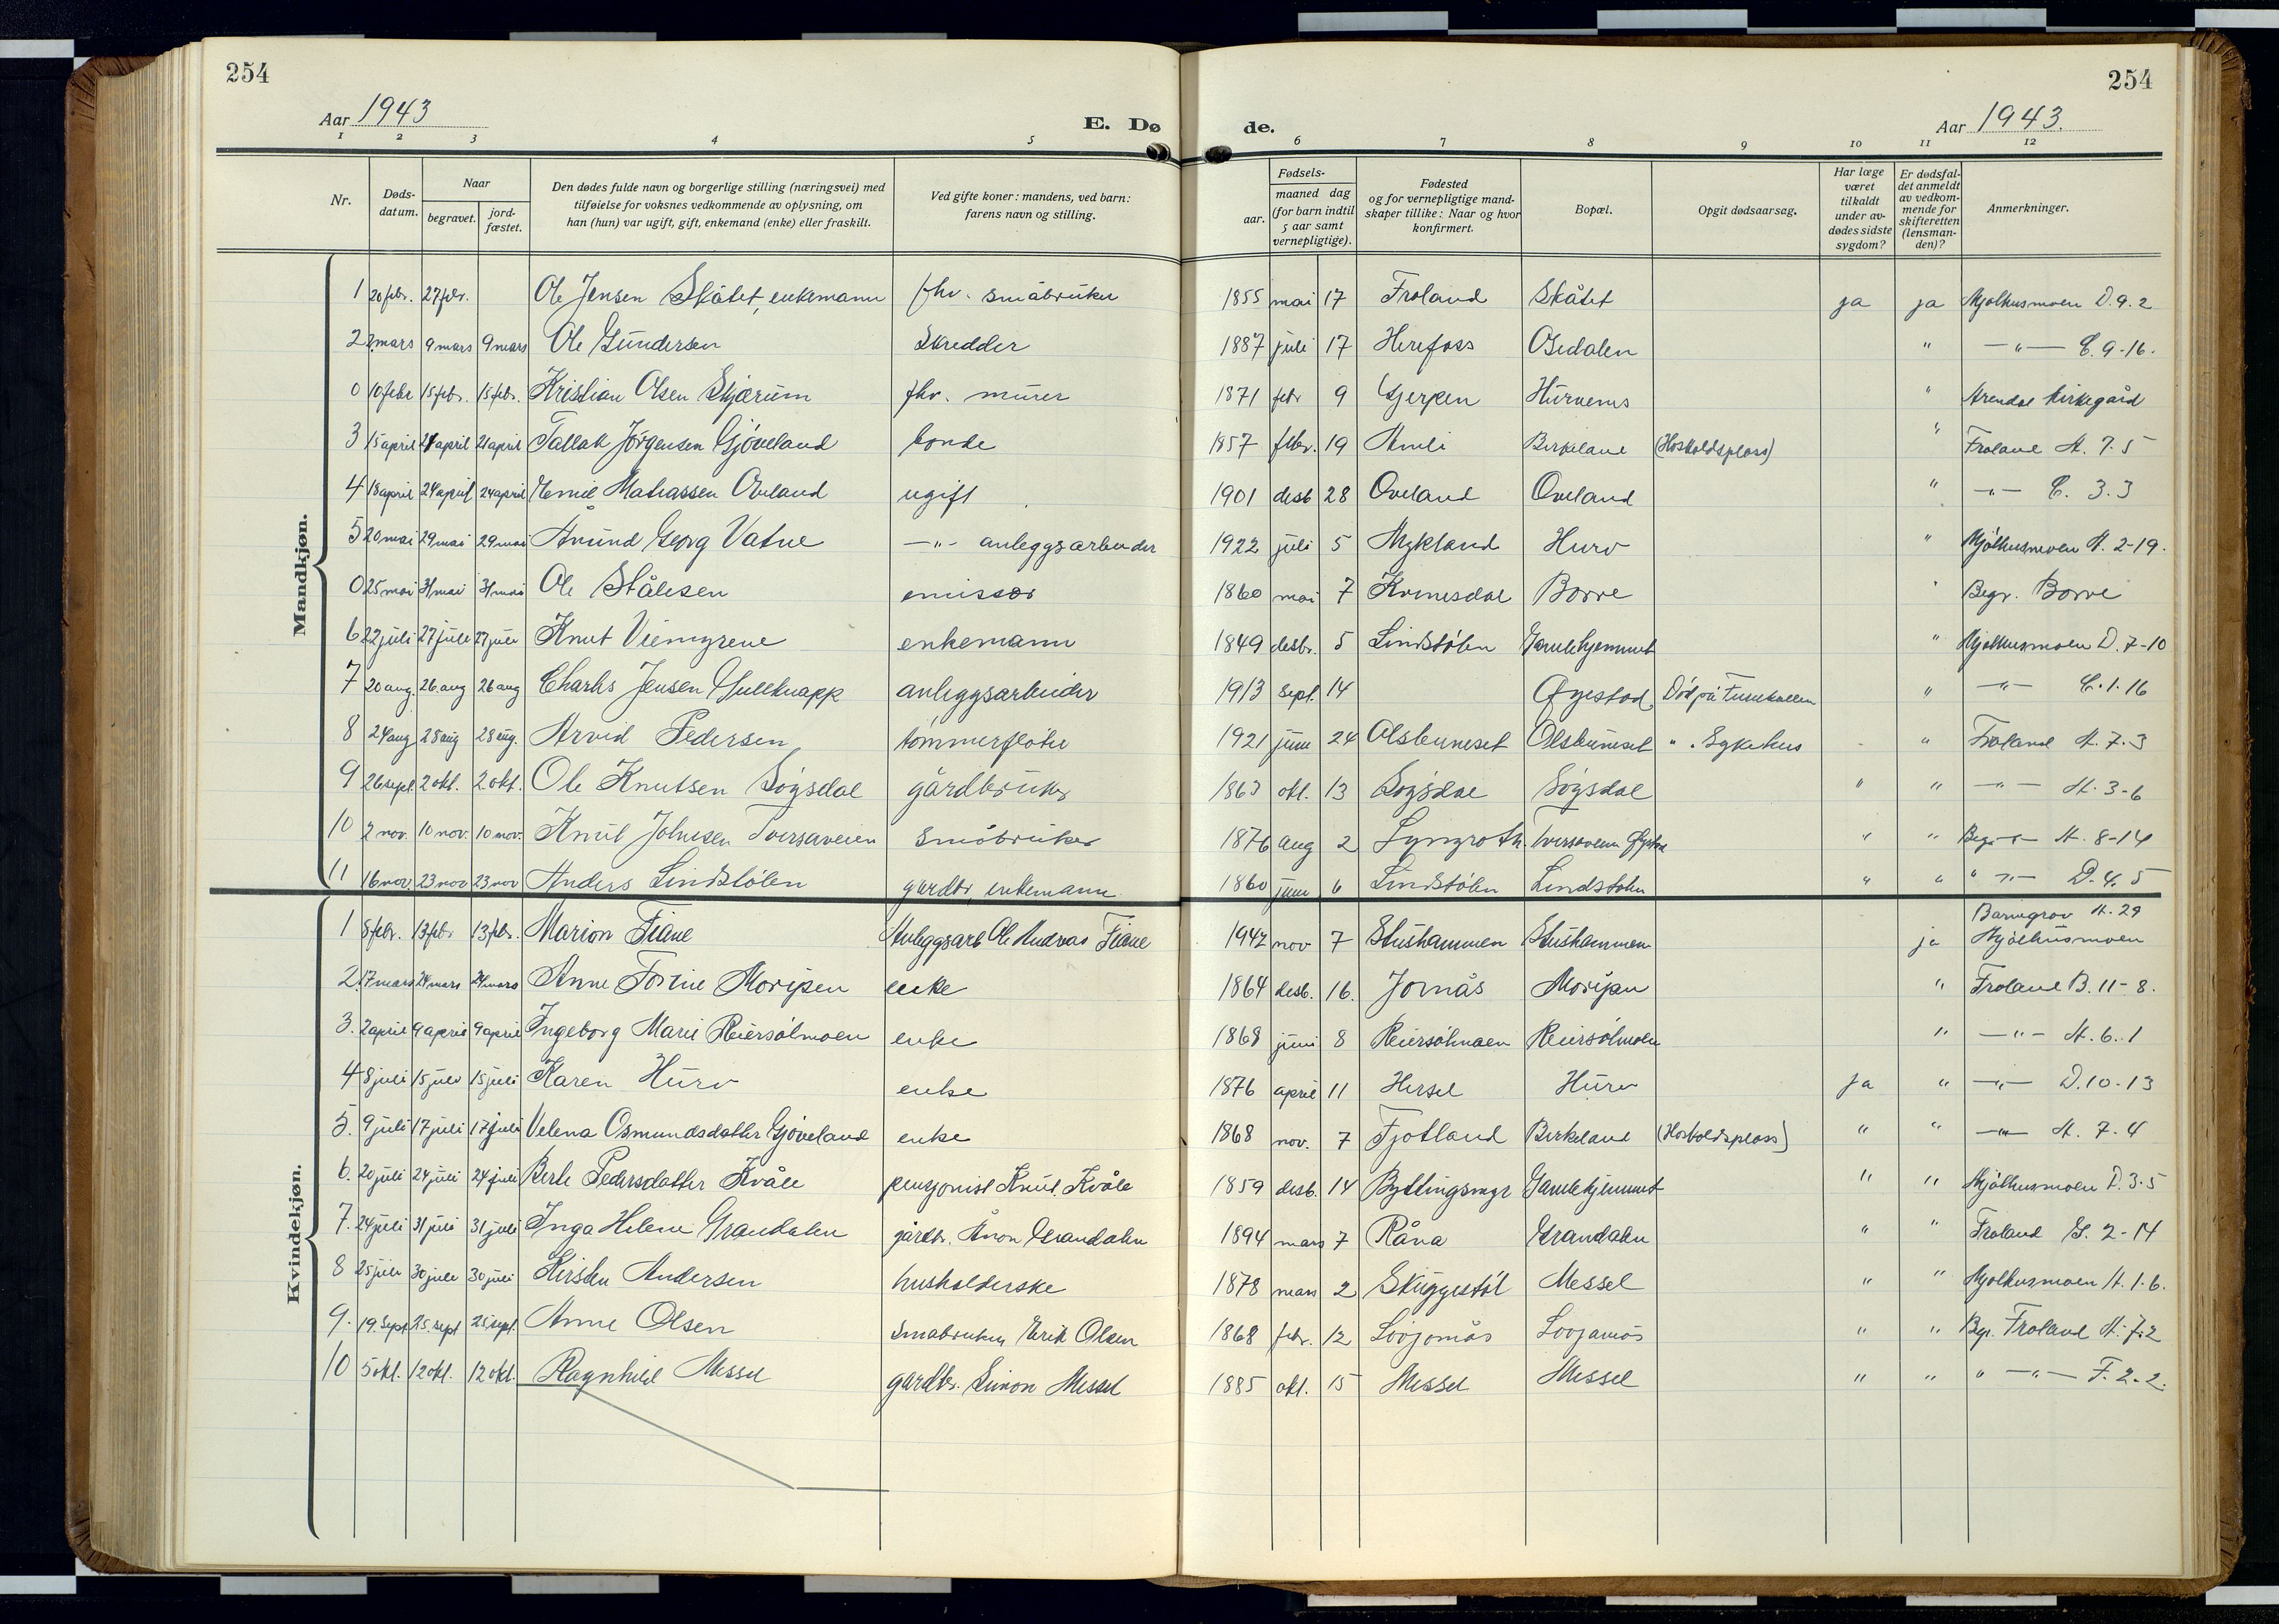 254
254
Aar 1943
E. Dø
de.
Aar 1943.
1 2 3 4 5 6 7 8 9 10 11 12
Nr.
Døds-
datum.
Naar
begravet.
jord-
fæstet.
Den dødes fulde navn og borgerlige stilling (næringsvei) med
tilføielse for voksnes vedkommende av oplysning, om
han (hun) var ugift, gift, enkemand (enke) eller fraskilt.
Ved gifte koner: mandens, ved barn:
farens navn og stilling.
Fødsels-
aar.
maaned dag
(for barn indtil
5 aar samt
vernepligtige).
Fødested
og for vernepligtige mand-
skaper tillike: Naar og hvor
konfirmert.
Bopæl.
Opgit dødsaarsag.
Har læge
været
tilkaldt
under av-
dødes sidste
sygdom?
Er dødsfal-
det anmeldt
av vedkom-
mende for
skifteretten
(lensman-
den)?
Anmerkninger.
Mandkjøn.
1 20 febr. 27 febr. Ole Jensen Skåtet, enkemann fhv. småbruker 1855 mai 17 Froland Skåtet ja ja Mjølhusmoen D. 9. 2
2 2 mars 9 mars 9 mars Ole Gundersen Skredder 1887 juli 17 Herefoss Osedalen " —"— C. 9-16.
0 10 febr 15 febr. 15 febr. Kristian Olsen Skjærum fhv. murer 1871 febr 9 Gjerpen Hurvenes " Arendal kirkegård
3 15 april 21 april 21 april Tallak Jørgensen Gjøveland bonde 1857 febr. 19 Åmli Birkeland (Hosholdsplass) " Froland A. 7. 5
4 18 april 24 april 24 april Emil Mathiassen Oveland ugift 1901 desb 28 Oveland Oveland " —"— C. 3. 3
5 20 mai 29 mai 29 mai Ånund Georg Vatne —"— anleggsarbeider 1922 juli 5 Mykland Hurv " Mjølhusmoen A. 2-19.
0 25 mai 31 mai 31 mai Ole Stålesen emissær 1860 mai 7 Kvinesdal Borre " Begr. Borre
6 22 juli 27 juli 27 juli Knut Viemyrene enkemann 1849 desbr. 5 Lindstølen Gamlehjemmet " Mjølhusmoen D. 7-10
7 20 aug. 26 aug 26 aug Charles Jensen Gullknapp anleggsarbeider 1913 sept. 14 Øyestad Død på " —"— C. 1. 16
8 24 aug 28 aug 28 aug. Arvid Pedersen tømmerfløter 1921 juni 24 Olsbuneset Olsbuneset " . Sykehus " Froland A. 7. 3
9 26 sept 2 okt. 2 okt. Ole Knutsen Løgsdal gårdbruker 1863 okt. 13 Løgsdal Løgsdal " " —"— A. 3-6
10 2 nov. 10 nov. 10 nov. Knut Johnsen Tversaveien småbruker 1876 aug 2 Lyngroth. Tversaveien Øyestad " " Begr —"— A. 8-14
11 16 nov. 23 nov 23 nov Anders Lindstølen gårdbr, enkemann 1860 juni 6 Lindstølen Lindstølen " " " —"— D. 4. 5
Kvindekjøn.
Barnegrav A. 29
1 8 febr. 13 febr 13 febr. Marion Fiane Anleggsarb Ole Andreas Fiane 1942 nov 7 Stushammen Stushammen ja Mjølhusmoen
2. 17 mars 24 mars 24 mars Anne Torine Moripen enke 1864 desb. 16. Jornås Moripen " Froland B. 11-8.
3. 2 april 9 april 9 april Ingeborg Marie Reiersølmoen enke 1868 juni 8 Reiersølmoen Reiersølmoen " —"— A. 6. 1
4 8 juli 15 juli 15 juli Karen Hurv enke 1876 april 11 Hersel Hurv ja " —"— D. 10-13
5. 9 juli 17 juli 17 juli Velena Osmundsdatter Gjøveland enke 1868 nov. 7 Fjotland Birkeland (Hosholdsplass) " " —"— A. 7. 4
6. 20 juli 24 juli 24 juli Berte Pedersdatter Kvåle pensjonist Knut Kvåle 1859 desb. 14 Byttingsmyr Gamlehjemmet " " Mjølhusmoen D. 3. 5
7. 24 juli 31 juli 31 juli Inga Helene Grandalen gårdbr. Ånon Grandalen 1894 mars 7 Råna Grandalen " " Froland G. 2-14
8 25 juli 30 juli 30 juli Kirsten Andersen husholderske 1878 mars 2 Skuggestøl Messel " " Mjølhusmoen A. 1. 6.
9. 19. Sept 25. sept 25 sept. Anne Olsen Småbruker Erik Olsen 1868 febr. 12 Lovjomås Lovjomås " " Bgr. Froland A. 7. 2
10 5 okt. 12 okt. 12 okt. Ragnhild Messel gårdbr. Simon Messel 1885 okt. 15 Messel Messel " " " —"— F. 2. 2.